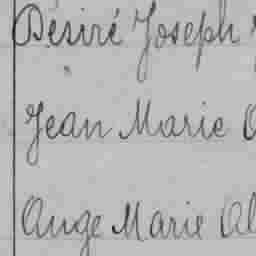 Désiré Joseph
Jean Marie
Ange Marie Al